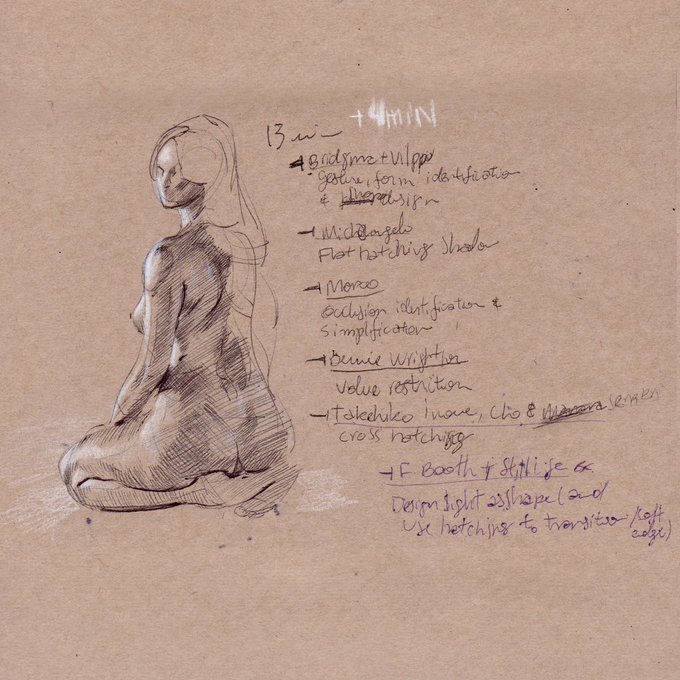 +4min
13 min
→ Bridgma + Vilppu
gesture, form identification
& design
→ Michelangelo
Flat hatching shadow
→ Marco
occlusion identification &
simplification
→ Bernie Wrightson
value restrition
→ Takehiko Inoue, Cho &
cross hatching
→ F Booth +
Design light as shape (and
use hatching to transition /soft
edge)